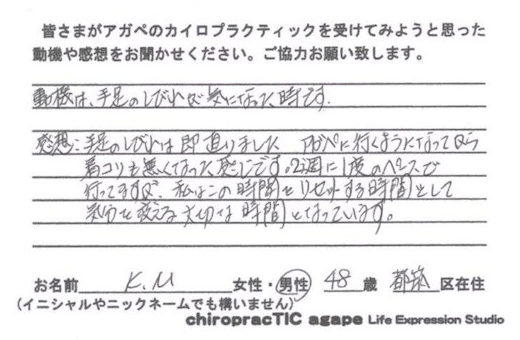 皆さまがアガペのカイロプラクティックを受けてみようと思った
動機や感想をお聞かせください。ご協力お願い致します。
動機は、手足のしびれが気になった時です。
感想:手足のしびれは即直りました アガペに行くようになってから
肩コリも無くなった感じです。2週に1度のペースで
行ってますが、私はこの時間をリセットする時間として
気分を変える大切な時間となっています。
お名前 K.M 女性・男性 48 歳 都筑 区在住
(イニシャルやニックネームでも構いません)
chiropracTIC agape Life Expression Studio